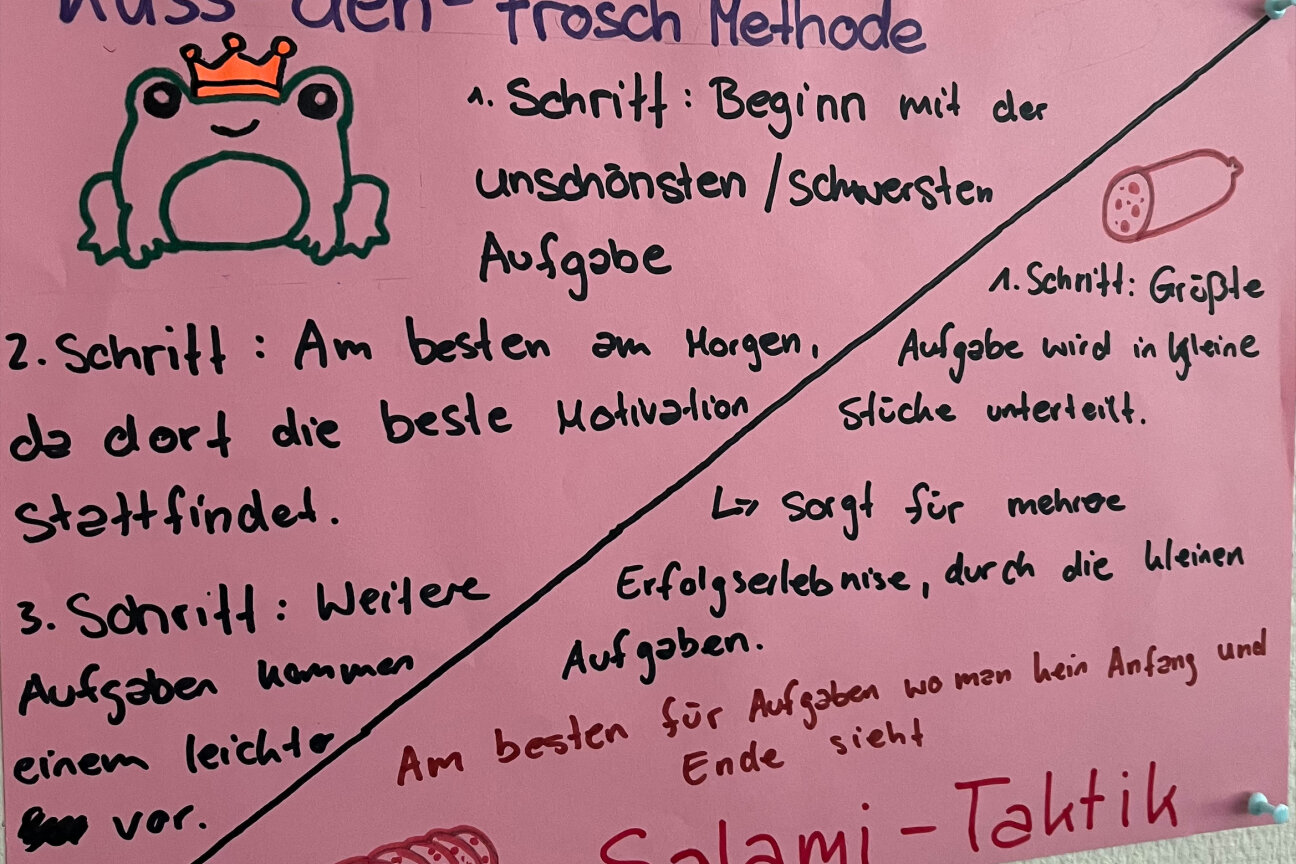 Küss den-Frosch Methode
1. Schritt: Beginn mit der
unschönsten/schwersten
Aufgabe
2. Schritt: Am besten am Morgen,
da dort die beste Motivation
stattfindet.
3. Schritt: Weitere
Aufgaben kommen
einem leichter
vor.
1. Schritt: Größte
Aufgabe wird in kleine
Stücke unterteilt.
↳ sorgt für mehrere
Erfolgserlebnise, durch die kleinen
Aufgaben.
Am besten für Aufgaben wo man kein Anfang und
Ende sieht
Salami-Taktik